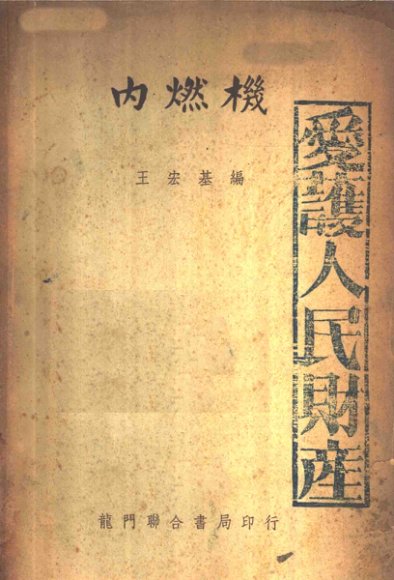 內燃機
王宏基編
愛護人民財產
龍門聯合書局印行